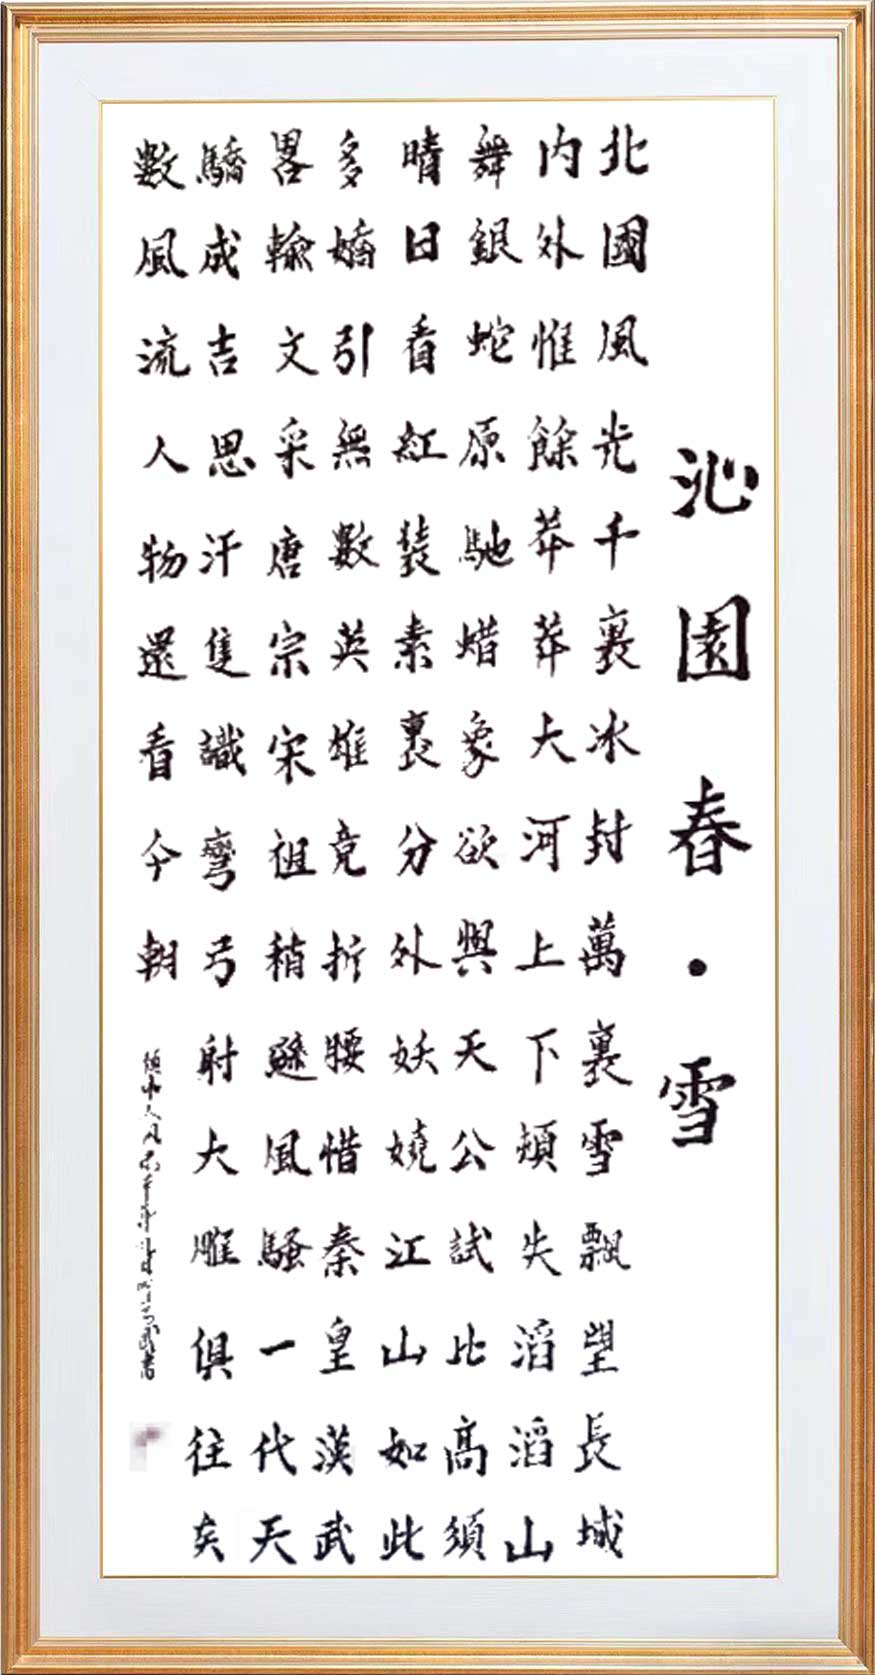 沁園春·雪
北國風光千裏冰封萬裏雪飄望長城
内外惟餘莽莽大河上下頓失滔滔山
舞銀蛇原馳蜡象欲與天公試比高須
晴日看紅裝素裹分外妖嬈江山如此
多嬌引無數英雄竟折腰惜秦皇漢武
畧輸文采唐宗宋祖稍遜風騷一代天
驕成吉思汗隻識彎弓射大雕俱往矣
數風流人物還看今朝